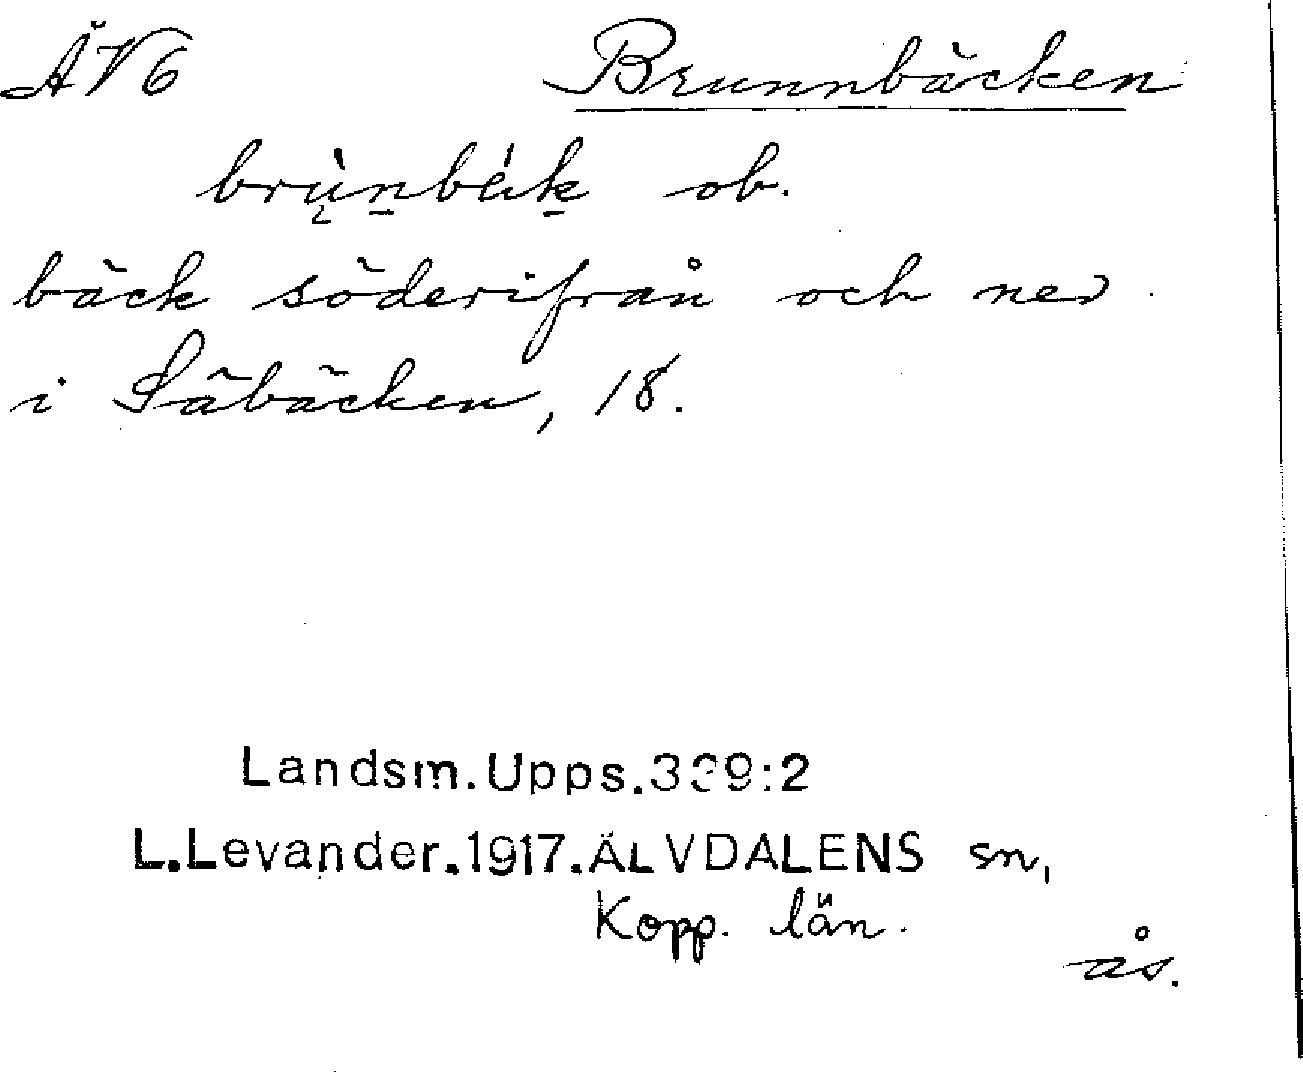 ÄV6 Brunnbäcken
brù̢n̠bákˍ ob.
bäck söderifrån och ner
i Säbäcken, 18.
Landsm.Upps.339:2
L.Levander.1917.ÄLVDALENS sn,
Kopp. län.
ås.